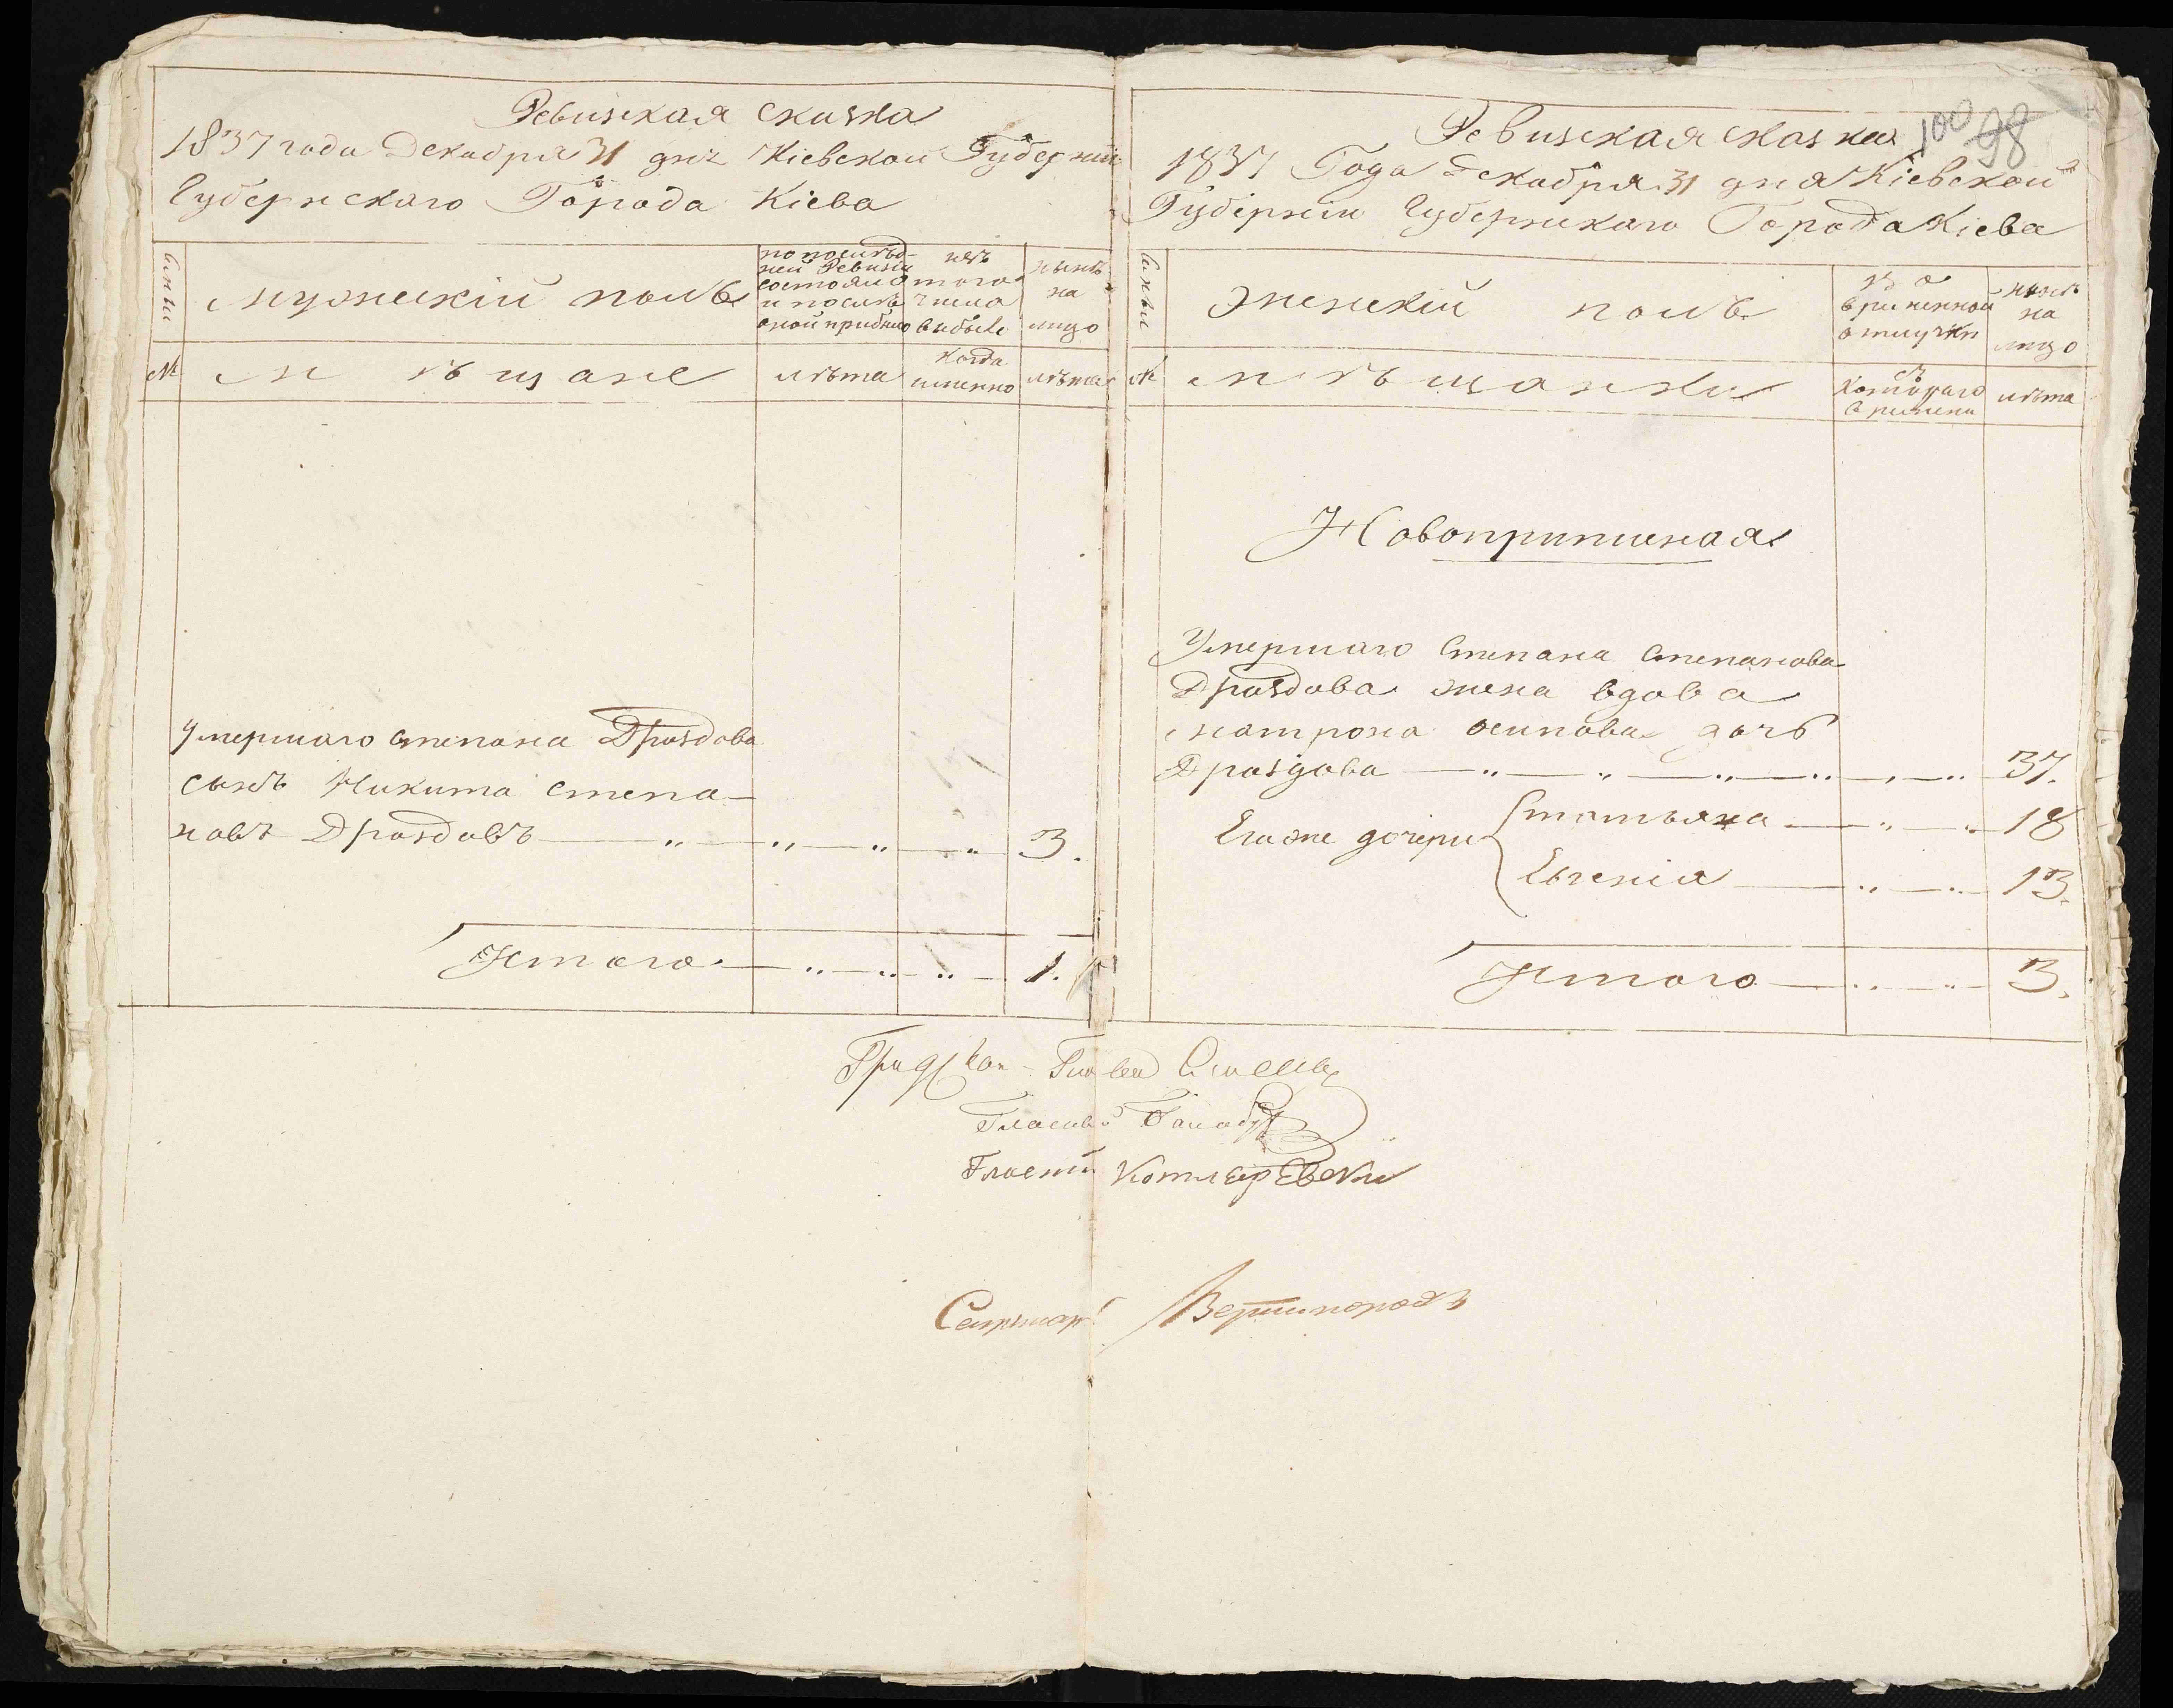 Ревизская сказка
1837 года Декабря 31 дня Кіевской Губерніи
Губернскаго Города Кіева
семьи
мужескій полъ
по послѣд-
ней Ревизіи
состояло
и послѣ
оной прибыло
изъ
того
числа
выбыло
нынѣ
на
лицо
№
мѣщане
лѣта
когда
именно
лѣта
умершаго степана Дроздова
сынъ Никита степа-
новъ Дроздовъ — " — " — " — " — 3.
Итого — " — " — " — 1.
100 98
Ревизская сказка
1837 Года Декабря 31 дня Кіевской
Губерніи Губернскаго Города Кіева
семьи
женскій полъ
во
временной
отлучки
нынѣ
на
лицо
№
мѣщанки
съ
котораго
времени
лѣта
Новоприписная
Умершаго степана степанова
Дроздова жена вдова
матрона осипова дочь
Дроздова — " — " — " — " — " — 37.
Егоже дочери { татьяна — " — " — 18
Евгенія — " — " — 13.
Итого — " — " — 3.
Град Глава
Гласный
Гласны Котляревски
Секретарь